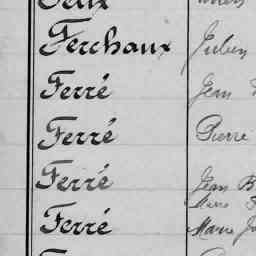 Ferchaux Julien
Ferré Jean
Ferré Pierre
Ferré Jean B
Marie
Ferré Marie